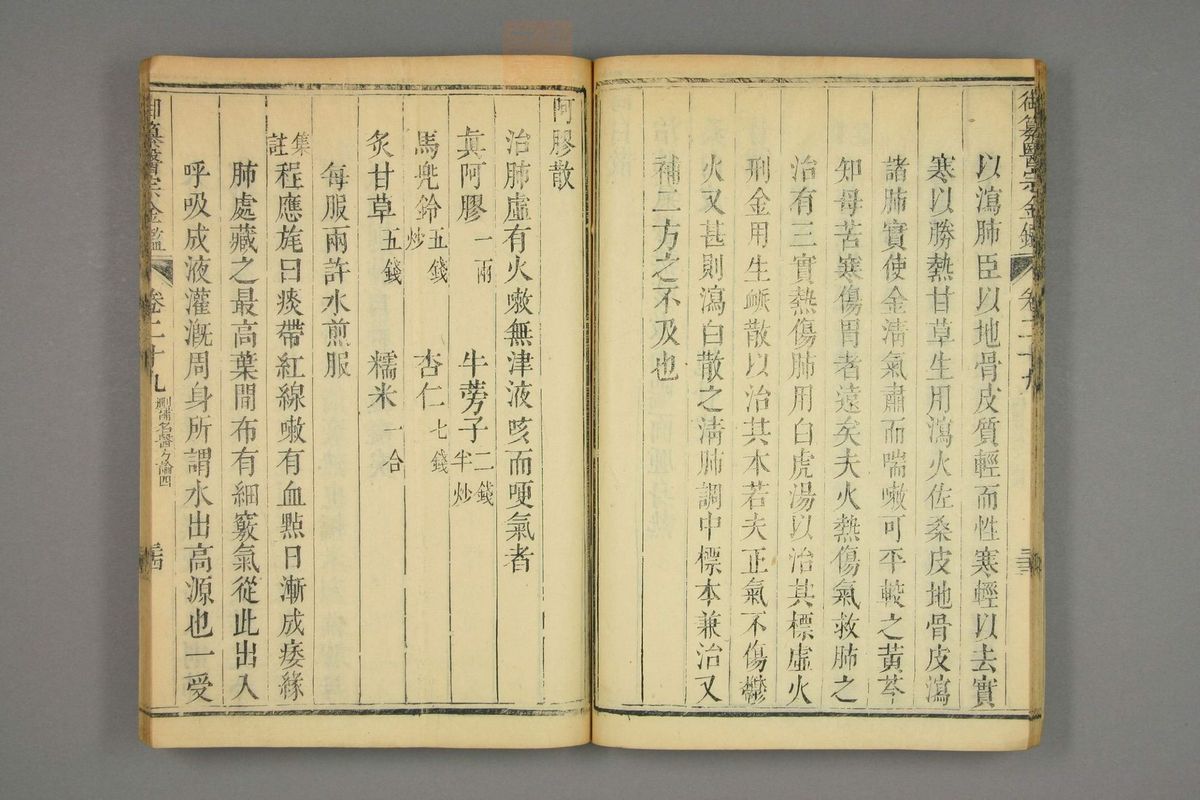 御纂醫宗金鑑
卷二十九
三十三
以瀉肺臣以地骨皮質輕而性寒輕以去實
寒以勝熱甘草生用瀉火佐桑皮地骨皮瀉
諸肺實使金淸氣肅而喘嗽可平較之黃芩
知母苦寒傷胃者遠矣夫火熱傷氣救肺之
治有三實熱傷肺用白虎湯以治其標虛火
刑金用生脈散以治其本若夫正氣不傷鬱
火又甚則瀉白散之淸肺調中標本兼治又
補二方之不及也
阿膠散
治肺虛有火嗽無津液咳而哽氣者
眞阿膠一兩 牛蒡子二錢半炒
馬兜鈴五錢炒 杏仁七錢
炙甘草五錢 糯米一合
每服兩許水煎服
集註程應旄曰痰帶紅線嗽有血點日漸成痿緣
肺處藏之最高葉間布有細竅氣從此出入
呼吸成液灌漑周身所謂水出高源也一受
御纂醫宗金鑑
卷二十九
刪補名醫方論四
三十四